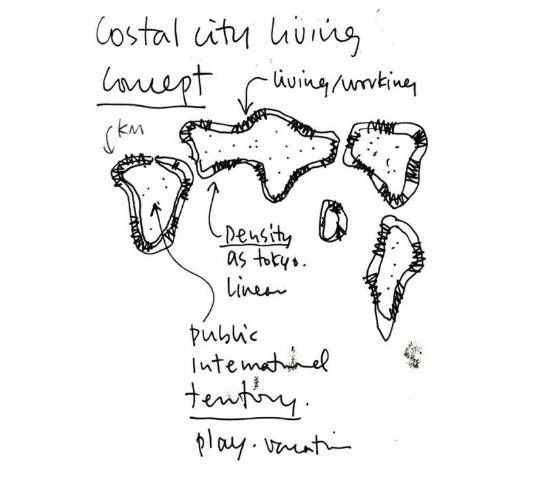 Costal city living
Concept
living/working
KM
Density
as tokyo.
linear
public
International
territory.
play. vacation